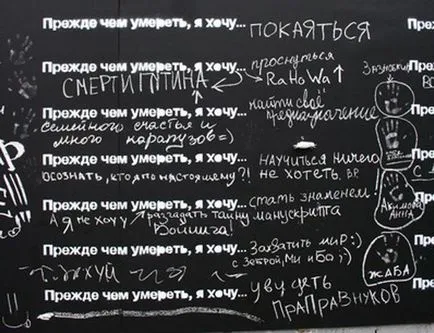 Прежде чем умереть, я хочу... ПОКАЯТЬСЯ
Прежде чем умереть, я хочу... проснуться
СМЕРТИ ПУТИНА RaHoWa
Прежде чем умереть, я хочу... найти своё предназначение
семейного счастья и
много карапузов =)
Прежде чем умереть, я хочу... научиться ничего
не хотеть. ВР.
осознать, кто я по настоящему?!
Прежде чем умереть, я хочу... стать знаменем!
А я не хочу разгадать тайну манускрипта
Войнича!
Прежде чем умереть, я хочу... Захватить мир :)
с Зеброй, Ми и Ба ;)
Прежде чем умереть, я хочу... увидеть
ПраПраВнуков
Акимова
Анна
ЖАБА